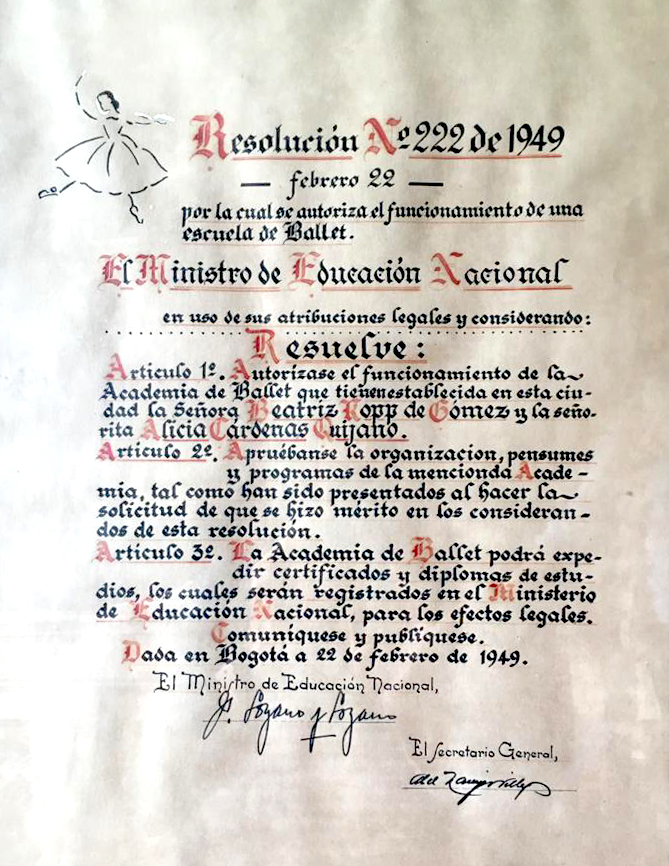 Resolución Nº 222 de 1949
— febrero 22 —
por la cual se autoriza el funcionamiento de una
escuela de Ballet.
El Ministro de Educación Nacional
en uso de sus atribuciones legales y considerando:
Resuelve:
Articulo 1º. Autorizase el funcionamiento de la
Academia de Ballet que tienenestablecida en esta ciu-
dad la Señora Beatriz Kopp de Gómez y la seño-
rita Alicia Cárdenas Quijano.
Articulo 2º. Apruébanse la organizacion, pensumes
y programas de la mencionda Acade-
mia, tal como han sido presentados al hacer la
solicitud de que se hizo mérito en los consideran-
dos de esta resolución.
Articulo 3º. La Academia de Ballet podrá expe-
dir certificados y diplomas de estu-
dios, los cuales serán registrados en el Ministerio
de Educación Nacional, para los efectos legales.
Comuníquese y publíquese.
Dada en Bogotá a 22 de febrero de 1949.
El Ministro de Educación Nacional,
Lozano y Lozano
El secretario General,